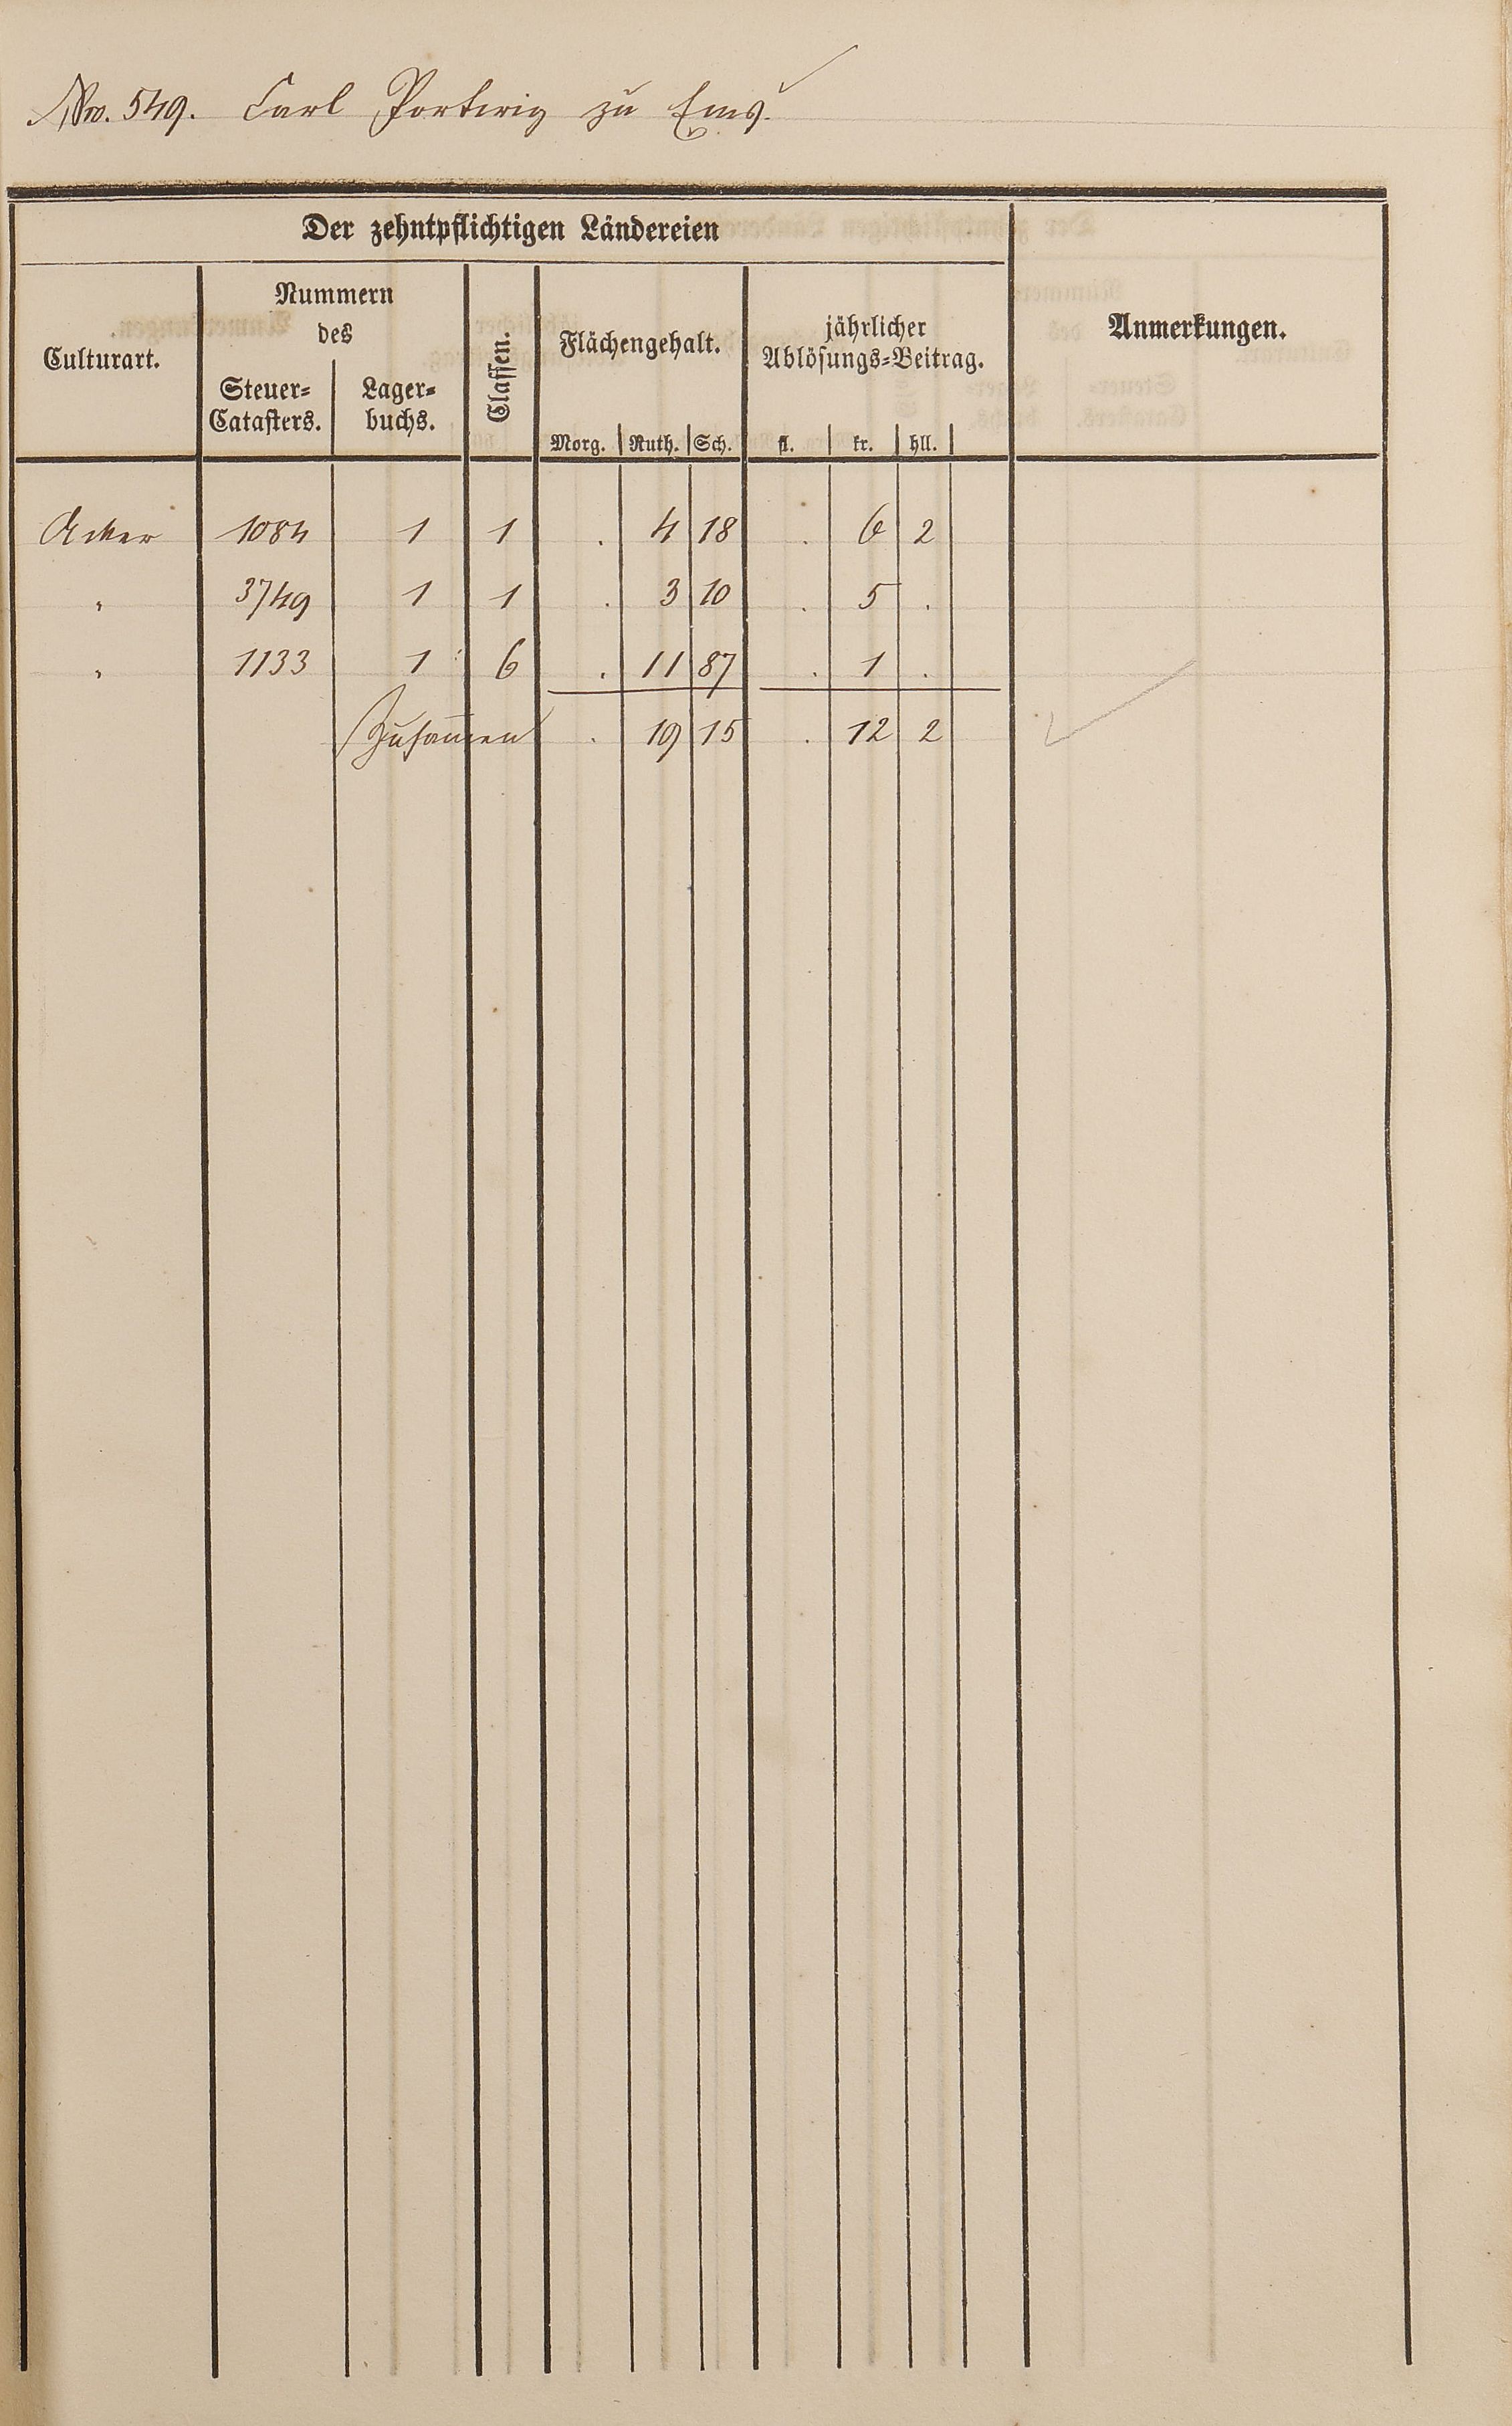 No. 549. Carl Portwig zu Ems.
Der zehntpflichtigen Ländereien
Culturart. Nummern des Steuer-Catasters. Lager-buchs. Classen. Flächengehalt. jährlicher Ablösungs-Beitrag. Anmerkungen.
Morg. Ruth. Sch. fl. kr. hll.
Acker 1084 1 1 . 4 18 . 6 2
" 3749 1 1 . 3 10 . 5 .
" 1133 1 6 . 11 87 . 1 .
Zusammen . 19 15 . 12 2